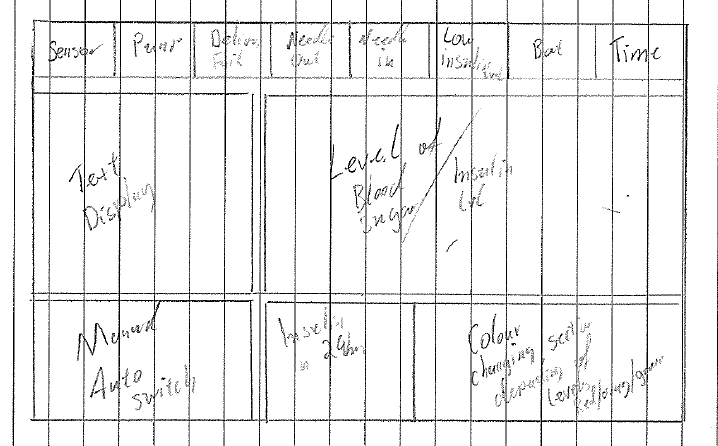 Sensor
Pump
Deliver
Fail
Needle
Out
Needle
in
Low
insulin
Bat
Time
Text
Display
Level of
Blood
Sugar
/
Insulin
Lvl
Manual
Auto
switch
Insulin
in 24hr
Colour
changing
depending of
Levels
Red/orang/green